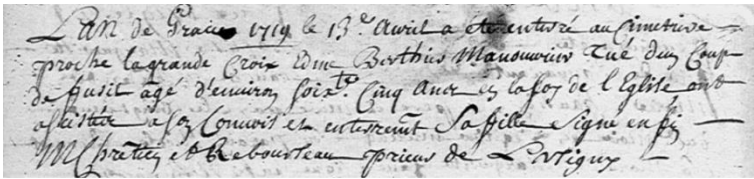 L'An de Grace 1719 le 13e Avril a ete enterré au Cimetiere
proche la grande Croix Edme Berthier Manouvrier Tué dun Coup
de fusil agé d'environ soixte Cinq Ans en la foy de l'Eglise ont
assistée a son Convois et enterremt Sa fille Signé en fin
M Chretien et Rebourseau prieur de